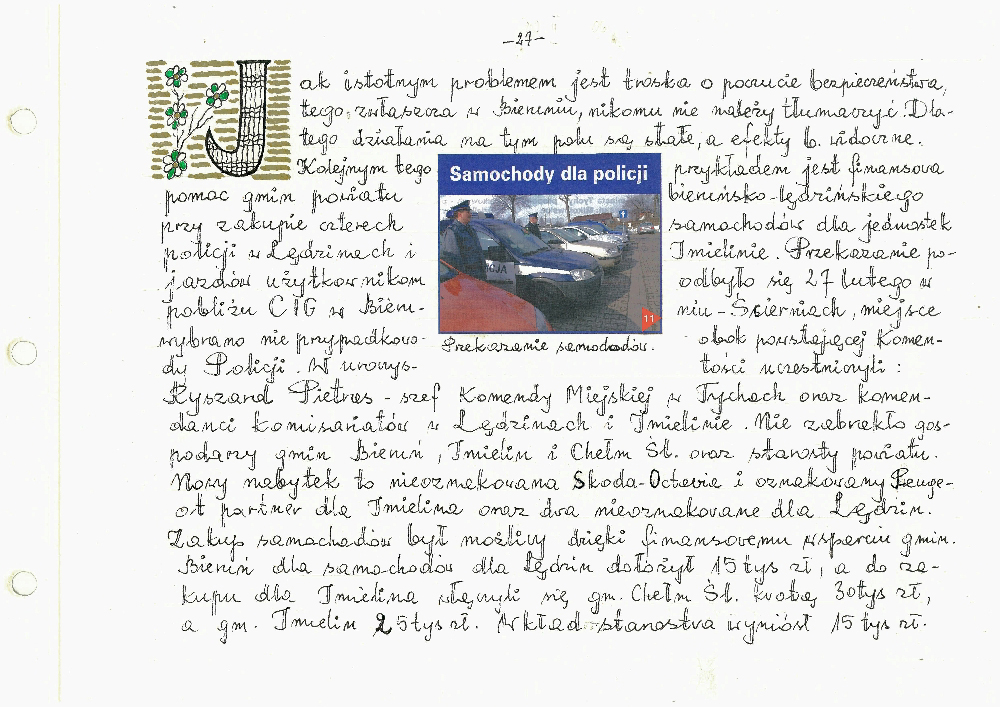 -27-
Jak istotnym problemem jest troska o poczucie bezpieczeństwa,
tego, zwłaszcza w Bieruniu, nikomu nie należy tłumaczyć. Dla-
tego działania na tym polu są stałe, a efekty b. widoczne.
Kolejnym tego przykładem jest finansowa
pomoc gmin powiatu bieruńsko-lędzińskiego
przy zakupie czterech samochodów dla jednostek
policji w Lędzinach i Imielinie. Przekazanie po-
jazdów użytkownikom odbyło się 27 lutego w
pobliżu CTG w Bieru- niu-Ścierniach, miejsce
wybrano nie przypadkowo- obok powstającej Komen-
dy Policji. W uroczys- tości uczestniczyli:
Samochody dla policji
11
Przekazanie samochodów.
Ryszard Pietras - szef Komendy Miejskiej w Tychach oraz komen-
danci komisariatów w Lędzinach i Imielinie. Nie zabrakło gos-
podarzy gmin Bieruń, Imielin i Chełm Śl. oraz starosty powiatu.
Nowy nabytek to nieoznakowana Skoda-Octavia i oznakowany Peuge-
ot partner dla Imielina oraz dwa nieoznakowane dla Lędzin.
Zakup samochodów był możliwy dzięki finansowemu wsparciu gmin.
Bieruń dla samochodów dla Lędzin dołożył 15 tys zł, a do za-
kupu dla Imielina włączyli się gm. Chełm Śl. kwotą 30 tys zł,
a gm. Imielin 25 tys zł. Wkład starostwa wyniósł 15 tys zł.